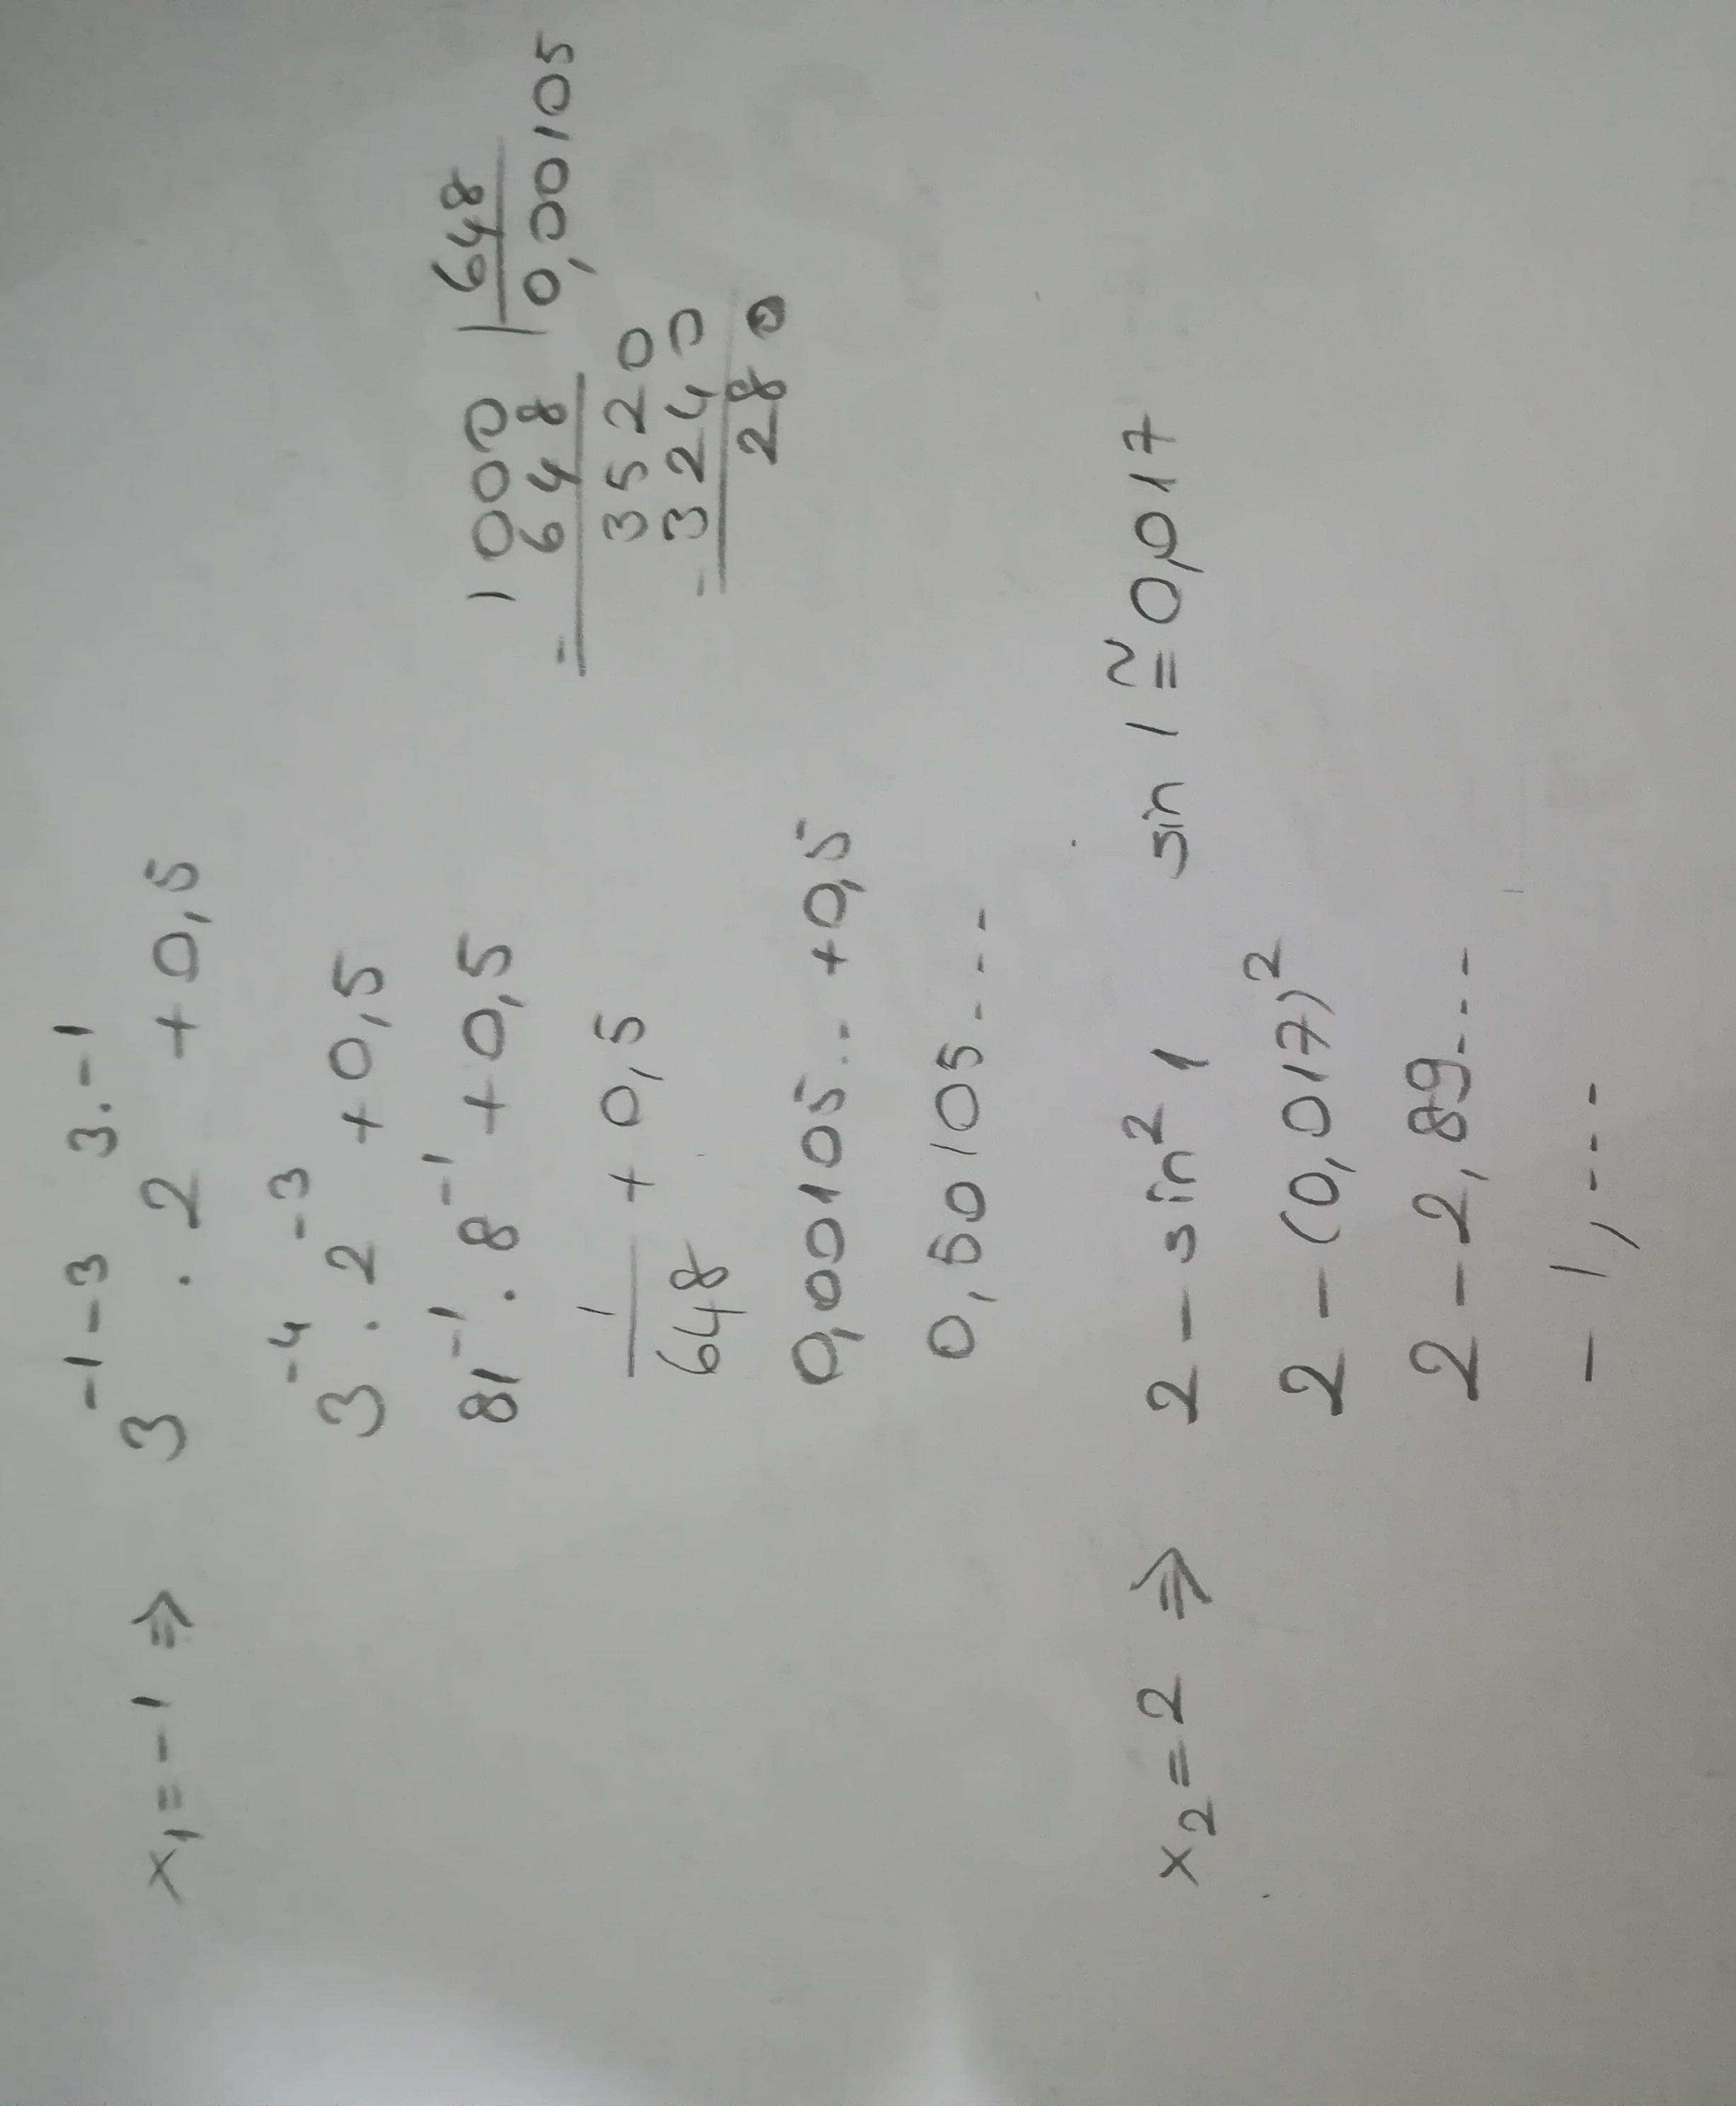 x₁ = -1 ⇒ 3⁻¹⁻³ . 2³·⁻¹ + 0,5
3⁻⁴ . 2⁻³ + 0,5
81⁻¹ . 8⁻¹ + 0,5
1/648 + 0,5
0,00105... + 0,5
0,50105....
1000 | 648
- 648 | 0,00105
3520
- 3240
280
x₂ = 2 ⇒ 2 - sin² 1 sin 1 ≅ 0,017
2 - (0,017)²
2 - 2,89...
- 1,...